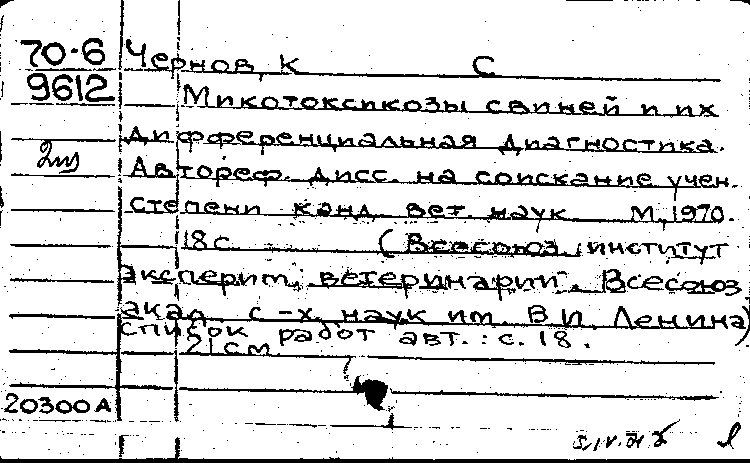 70-6 Чернов, К С
9612 Микотоксикозы свиней и их
дифференциальная диагностика.
2из Автореф. дисс. на соискание учен.
степени канд. вет. наук М., 1970.
18 с. (Всесоюз. институт
эксперим. ветеринарии. Всесоюз
акад. с-х. наук им. В И. Ленина)
список работ авт. : с. 18.
21 см
20300А